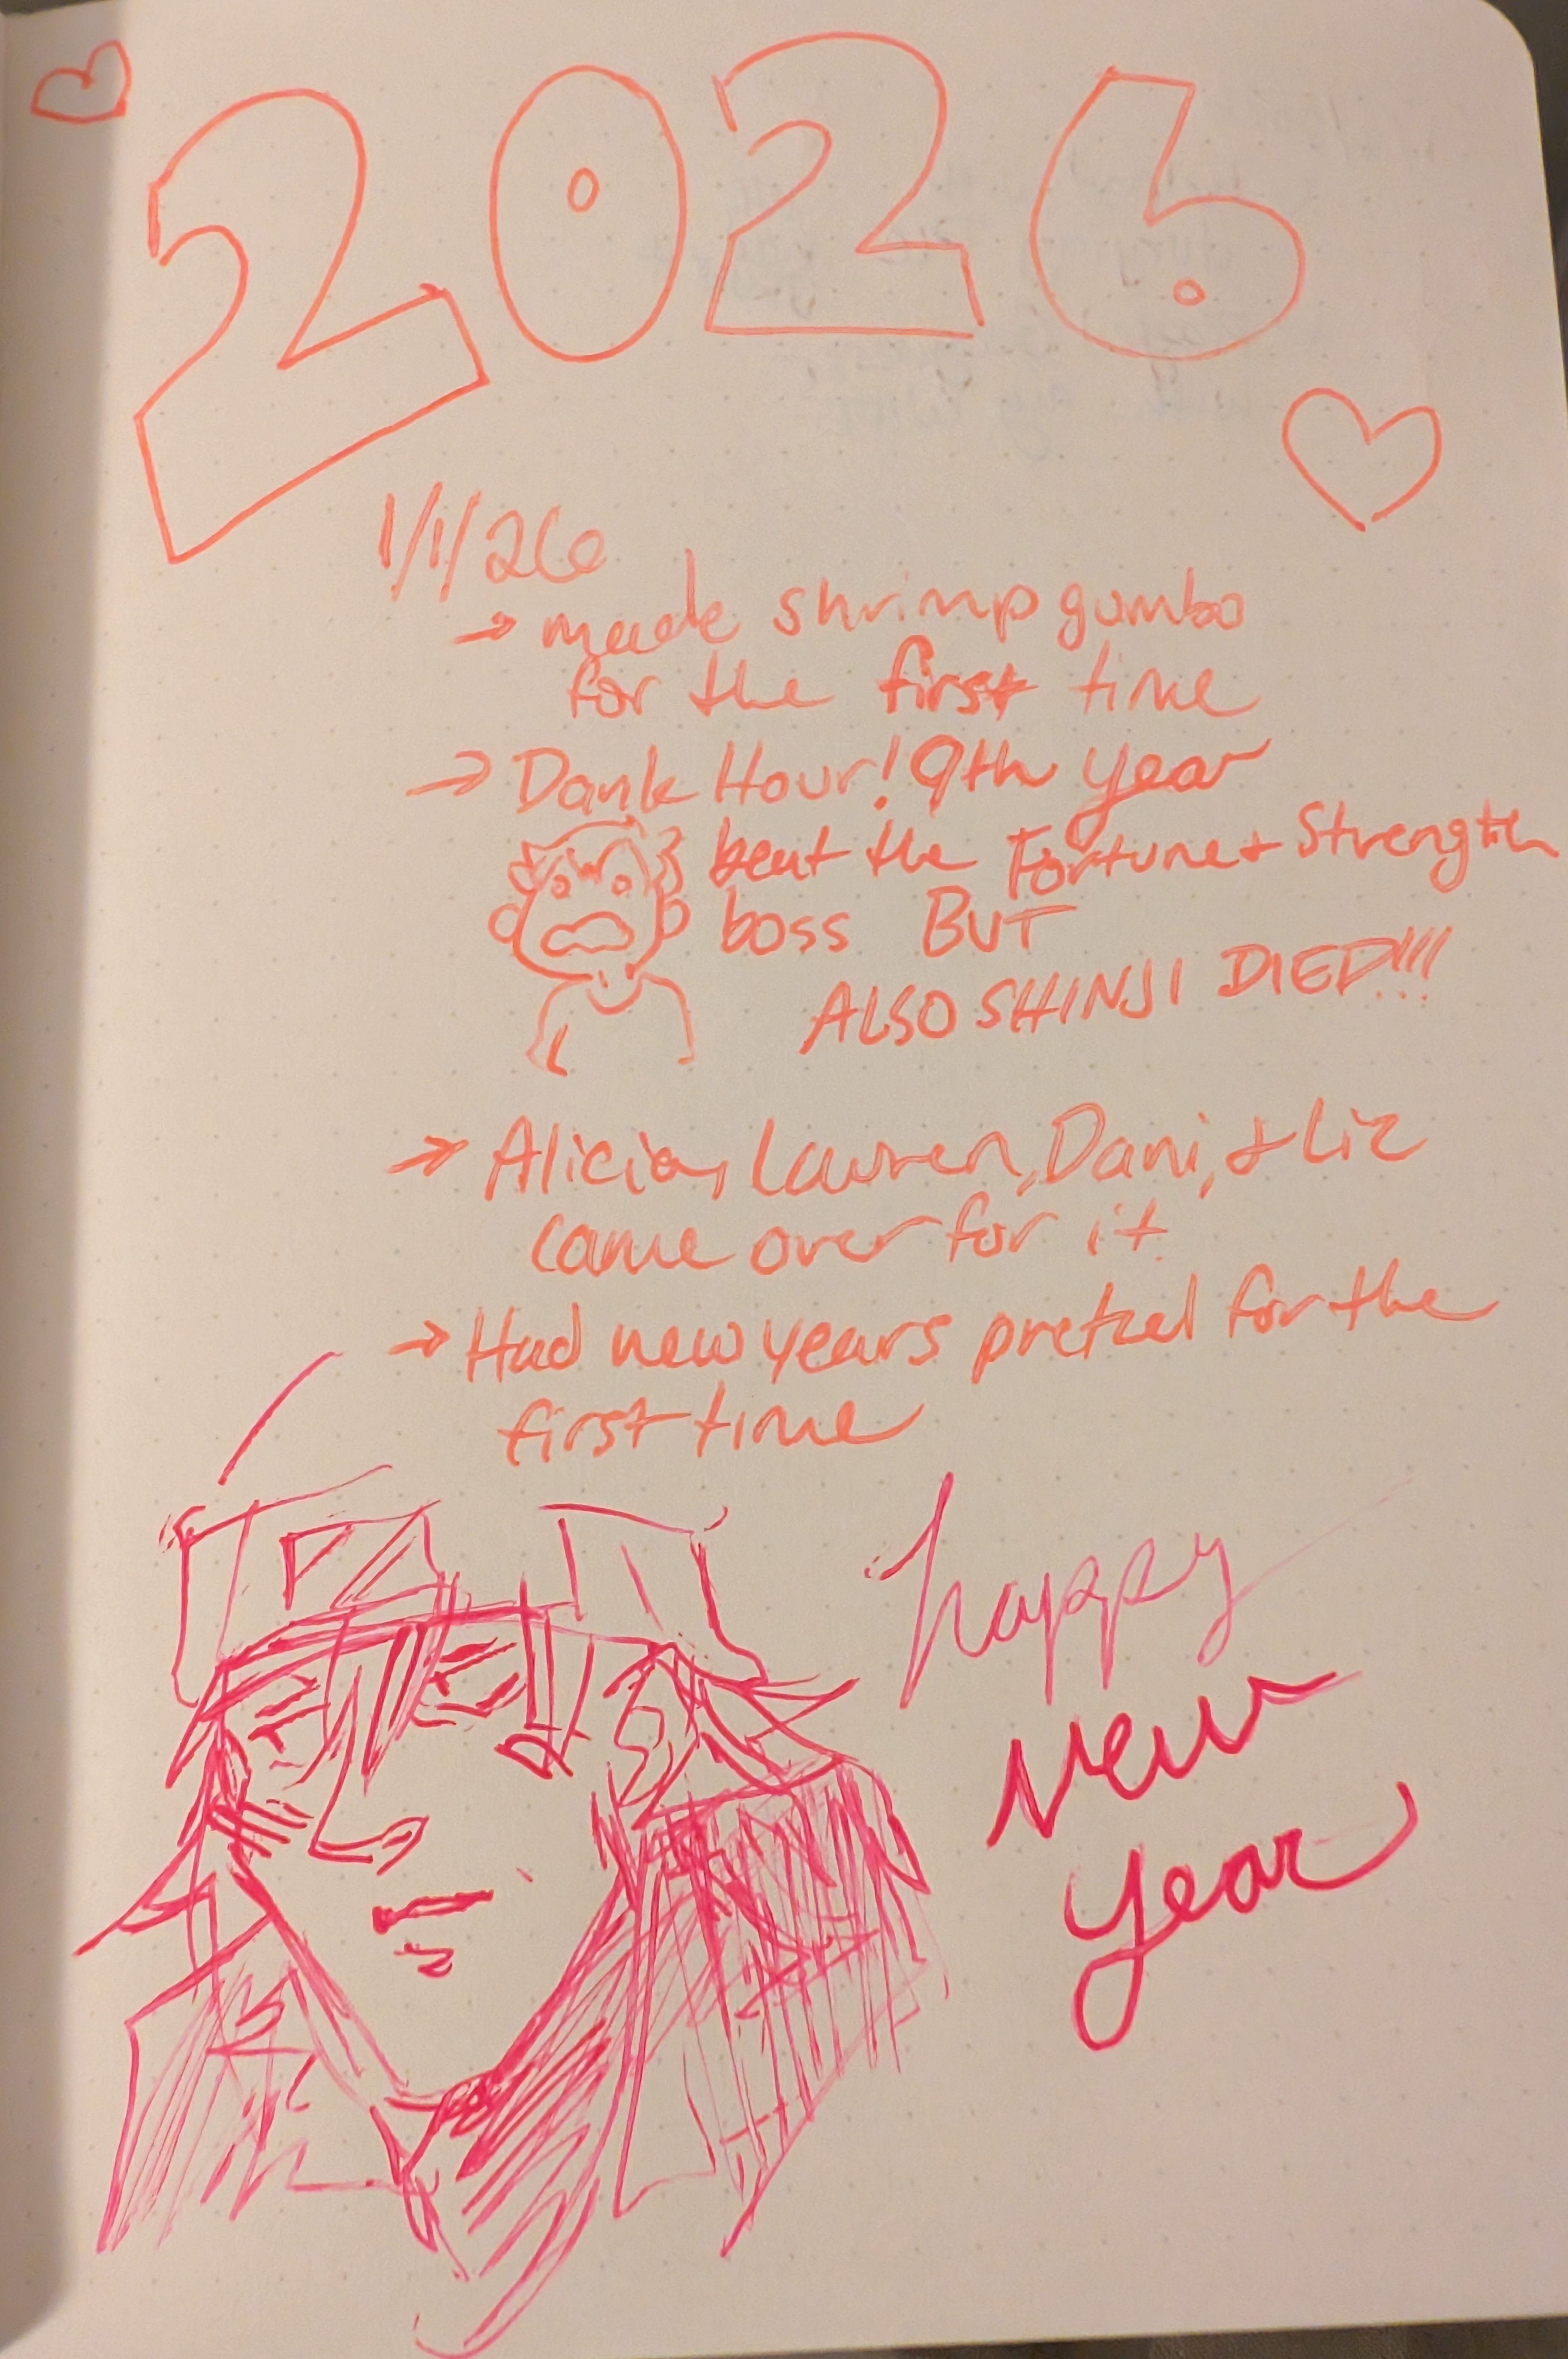 2026
1/1/26
→ made shrimp gumbo
for the first time
→ Dank Hour! 9th year
beat the Fortune + Strength
boss BUT
ALSO SHINJI DIED!!!
→ Alicia, Lauren, Dani, + Liz
came over for it
→ Had new years pretzel for the
first time
happy
New
Year